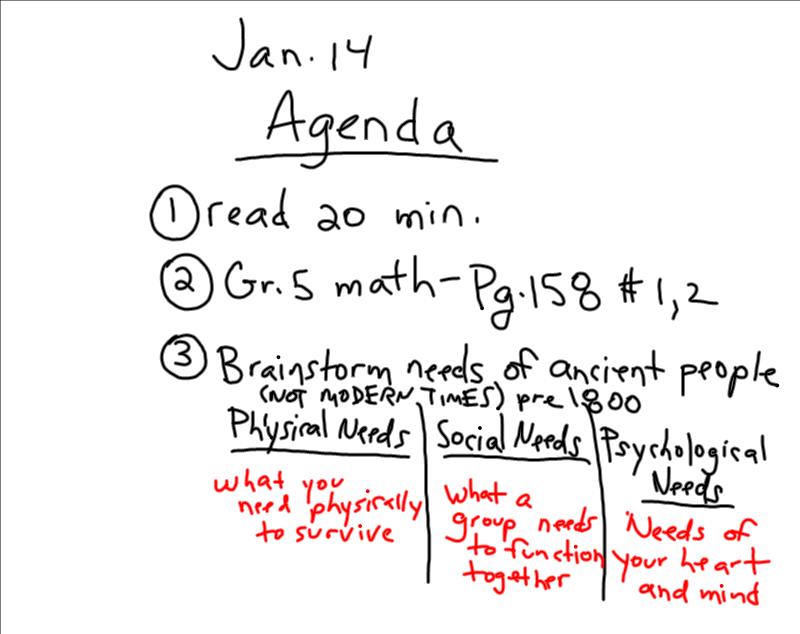 Jan. 14
Agenda
① read 20 min.
② Gr. 5 math - Pg. 158 # 1, 2
③ Brainstorm needs of ancient people
(NOT MODERN TIMES) pre 1800
Physical Needs
what you
need physically
to survive
Social Needs
What a
group needs
to function
together
Psychological
Needs
Needs of
your heart
and mind